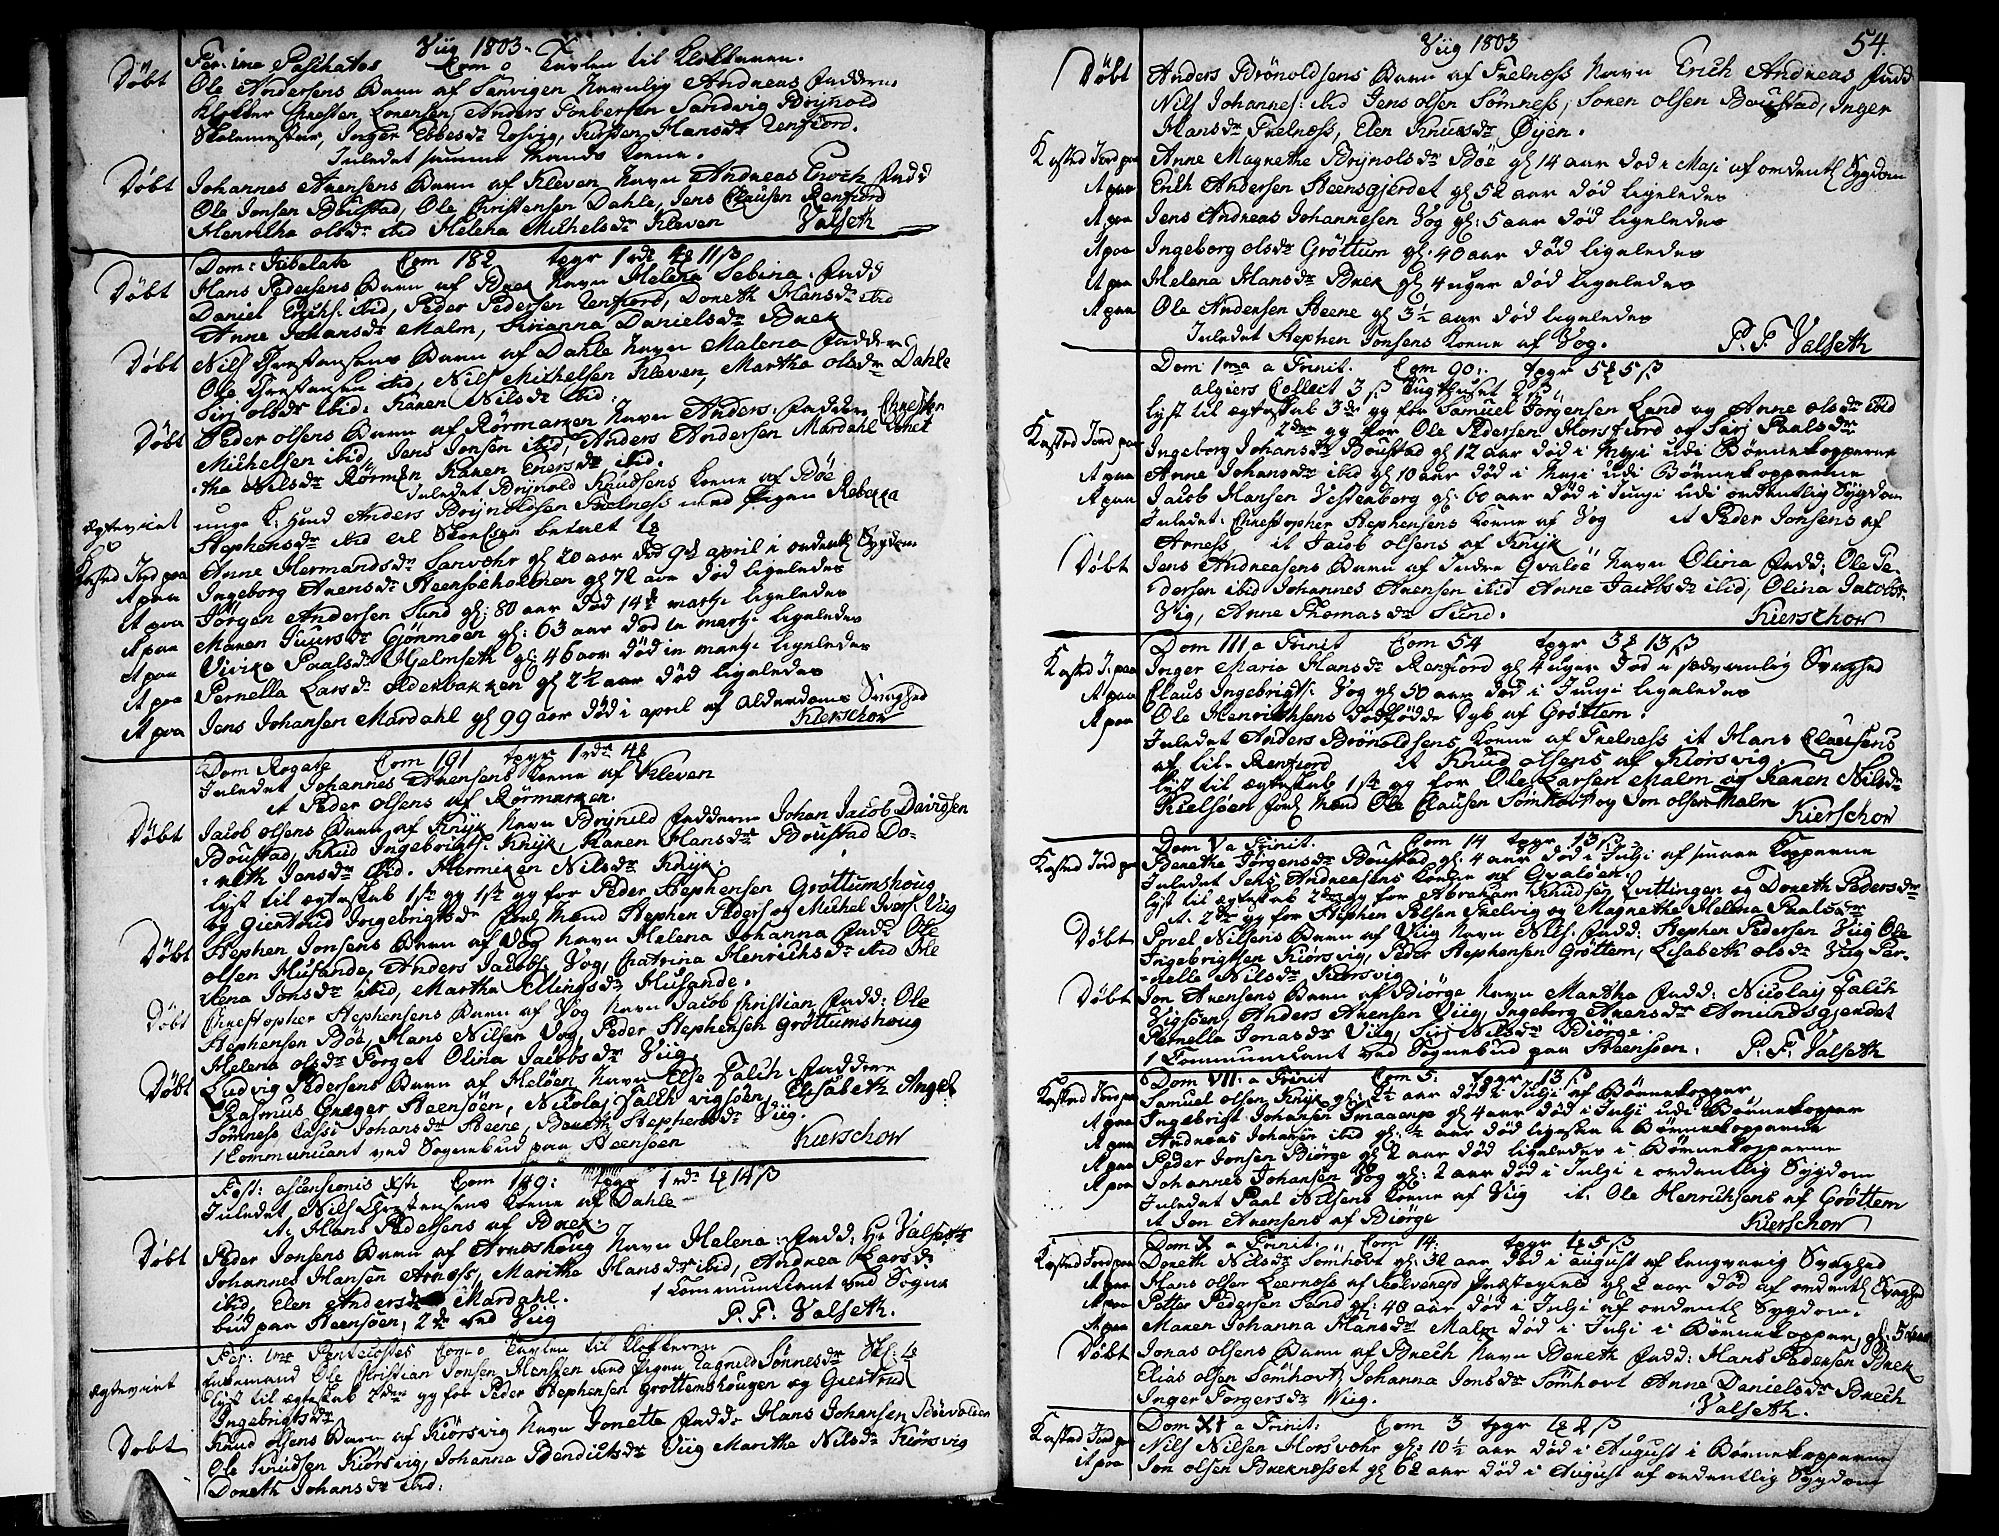 Viig 1803.
Fer: 2na Paschatos Com 0 Tavlen til Klokkeren.
Døbt Ole Andersens Barn af Sanvigen Navnlig Andreas Faddere
Klokker Christen Lorensen, Anders Torbersen Sandvig Brynold
Skolemester, Inger Ebbesdr Tosvig, Kirsten Hansdr Renfiord.
Inledet samme Mands Kone.
Døbt Johannes Arensens Barn af Kleven Navn Andreas Enoch Fadd
Ole Jonsen Boustad, Ole Christensen Dahle, Jens Clausen Renfiord
Henricha olsdr ibid Helena Michelsdr Kleven Valseth
Dom: Jubilate Com 182 tpgr 1 rdr 4 11 ß
Døbt Hans Pedersens Barn af Bræk Navn Helena Sebina. Fadd
Daniel Erichs: ibid, Peder Pedersen Renfiord, Doreth Hansdr ibid
Anne Johansdr Malm, Susanna Danielsdr Bræk
Døbt Nils Christensens Barn af Dahle Navn Malena Faddere
Ole Christensen ibid, Nils Michelsen Kleven, Martha olsdr Dahle
Sirj olsdr ibid: Karen Nilsdr ibid.
Døbt Peder olsens Barn af Rørmarken Navn Anders: Faddere Christen
Michelsen ibid, Jens Jonsen ibid, Anders Andersen Mardahl
the Nilsdr Rørmen Karen Enersdr ibid.
Inledet Brynold Knudsens Kone af Bøe
Ægteviet unge K: Hend Anders Brynoldsen Trelness med Pigen Rebekka
Stephensdr ibid til Skoelsen betalt
Kasted Jord paa Anne Hermandsdr Sanvohr gl 20 aar død 9de april i ordentl Sygdom
It paa Ingeborg Arensdr Steensøeholmen gl 72 aar død ligeledes
It paa Jørgen Andersen Sund gl: 80 aar død 14de martj ligeledes
It paa Maren Siursdr Gjønmoen gl: 63 aar død in martj ligeledes
It paa Vivike Paalsdr Hjelmseth gl: 46 aar død in martj ligeledes
It paa Pernella Larsdr Olderbakken gl 2½ aar død ligeledes
It paa Jens Johansen Mardahl gl 99 aar død i april af Alderdoms Svaghed
Kierschow
Dom Rogate Com 191 tpgr 1 rdr 4
Inledet Johannes Arensens Kone af Kleven
it Peder olsens af Rørmarken.
Døbt Jacob olsens Barn af Knijk Navn Brynild Faddere Johan Jacob Davidsen
Boustad, Knud Ingebrigts: Knijk, Karen Hansdr Boustad Do-
reth Jansdr ibid. Hermiken Nilsdr Knijk.
lyst til ægteskab 1ste gg 1ste gg for Peder Stephensen Grøttumshoug
og Giertrud Ingebrigtsdr forl Mænd Stephen Peders og Michel Ivers: Viig
Døbt Stephen Jonsens Barn af Vog Navn Helena Johanna Fadd Ole
olsen Husande, Anders Jacobs: Vog, Chatrina Henrichsdr ibid He
lena Jonsdr ibid, Martha Ellingsdr Husande.
Døbt Christopher Stephensens Barn af Vog Navn Jacob Christian Fadd: Ole
Stephensen Bøe, Hans Nilsen Vog Peder Stephensen Grøttumshoug
Helena olsdr Torget Olina Jacobsdr Viig
Døbt Ludvig Pedersens Barn af Heløen Navn Else Falch Faddere
Rasmus Greger Steensøen, Nicolaj Falch Vigsøen, Elisabeth Angel
Sømness Cassi Johansdr Steene, Bereth Stephensdr Viig.
1 Communicant ved Sognebud paa Steensøen Kierschow
Fest: ascensionis Xsti Com 149: tpgr 1 rdr 14 ß
Inledet Nils Christensens Kone af Dahle
it: Hans Pedersens af Bræk.
Døbt Peder Jonsens Barn af Arneshoug Navn Helena: Fadd: Hr Valseth
Johannes Hansen Arness, Marithe Hansdr ibid, Andrea Larsdr
ibid, Elen Andersdr Mardahl. 1 Communicant ved Sogne
bud paa Steensøen, 2de ved Viig P. F. Valseth.
Fer: 2na Pentecostes Com 0 Tavlen til Klokkeren
Ægteviet Ole Christian Jonsen med Pigen Ragnild Sønnesdr
lyst til ægteskab 2den gg for Peder Stephensen Grøttumshougen og Giertrud
Ingebrigtsdr
Døbt Knud olsens Barn af Kiørsvig Navn Jonetta Fadd: Hans Johansen Bøevolden
Ole Knudsen Kiørsvig, Johanna Bendicksdr Viig Marithe Nilsdr Kiørsvig
Doreth Johansdr ibid:
54.
Viig 1803
Døbt Anders Brønoldsens Barn af Trelness Navn Erich Andreas Fadd
Nils Johannes: ibid Jens olsen Sømness, Soren olsen Boustad, Inger
Hansdr Trelness, Elen Knudsdr Øyen.
Kasted Jord paa Anne Magrethe Brynolsdr Bøe gl 14 aar død i Maji af ordentl Sygdom
It paa Erich Andersen Steensgjerdet gl 52 aar død ligeledes
It paa Jens Andreas Johannesen Vog gl: 5 aar død ligeledes
It paa Ingeborg olsdr Grøttum gl: 40 aar død ligeledes
It paa Helena Hansdr Bræk gl 4 uger død ligeledes
It paa Ole Andersen Steene gl 3½ aar død ligeledes
Inledet Stephen Jonsens Kone af Vog. P. F. Valseth
Dom 1ma a Trinit. Com 90: tpgr 5 5 ß
algiers Collect 3 ß Tugthuset 2 ß
lyst til ægteskab 3die gg for Samuel Jørgensen Land og Anne olsdr ibid
2den gg for Ole Pedersen Horsfiord og Sirj Paalsdr
Kasted Jord paa Ingeborg Johansdr Boustad gl 12 aar død i Maji udi Børnekopperne
It paa Anne Johansdr ibid gl 10 aar død i Maji udi Børnekopperne
It paa Jacob Hansen Vestenberg gl: 60 aar død i Junji udi ordentlig Sygdom
Inledet: Christopher Stephensens Kone af Vog it Peder Jonsens af
Arness it Jacob olsens af Knijk
Døbt Jens Andreasens Barn af Indre Qvaløe Navn Olina Fadd: Ole Pe-
dersen ibid Johannes Arensen ibid Anne Jacobsdr ibid, Olina Jacobsdr
Viig, Anne Thomasdr Sund. Kierschow
Dom III a Trinit Com 54 tpgr 3 13 ß
Kasted J: paa Inger Maria Hansdr Renfiord gl 4 uger død i sædvanlig Svaghed
It paa Claus Ingebrigts: Vog gl 50 aar død i Junji ligeledes
It paa Ole Henrichsens dødfødde Dyb af Grøttem.
Inledet Anders Brønoldsens Kone af Trelness it Hans Clausens
af lit- Renfiord it Knud olsens af Kiørsvig.
lyst til ægteskab 1ste gg for Ole Larsen Malm og Karen Nilsdr
Kielsøen forl Mænd Ole Clausen Sømhovt og Jon olsen Malm Kierschow
Dom V a Trinit. Com 14 tpgr 13 ß
Kasted Jord paa Berethe Jørgensdr Boustad gl: 4 aar død i Julji af smaae Kopperne
Inledet Jens Andreasens Kone af Qvaløen.
lyst til ægteskab 2den gg for Abraham Knudsen Qvittingen og Doreth Pedersdr
it. 2den gg for Stephen Polsen Trelvig og Magrethe Helena Paalsdr
Døbt Povel Nilsens Barn af Viig Navn Nils. Fadd: Stephen Pedersen Viig Ole
Ingebrigtsen Kiørsvig, Peder Stephensen Grøttem, Lisabeth olsdr Viig Per-
nelle Nilsdr Kiørsvig
Døbt Jon Arensens Barn af Biørge Navn Martha Fadd: Nicolaij Falch
Vigsøen, Anders Arensen Viig, Ingeborg Arensdr Amundsgjerdet
Pernella Jonasdr Viig, Sirj Nilsdr Biørge.
1 Communicant ved Sognebud paa Steensøen. P. F. Valseth
Dom VII: a Trinit Com 5: tpgr 13 ß
Kasted Jord paa Samuel olsen Knijk gl: 2½ aar død i Julji af Børnekopper
It paa Ingebrigt Johansen gl 4 aar død i Julji udi Børnekopper
It paa Andreas Johansen ibid gl: ½ aar død ligesaa i Børnekopperne
It paa Peder Jonsen Biørge gl 2 aar død ligeledes i Børnekopperne
It paa Johannes Johansen Vog gl: 2 aar død i Julji i ordentlig Sygdom
Inledet Paal Nilsens Kone af Viig it: Ole Henrichsens af Grøttem
it Jon Arensens af Biørge Kierschow
Dom X a Trinit. Com 14: tpgr 5 ß
Kasted Jord paa Doreth Nilsdr Sømhovt gl: 32 aar død i August af langvarig Svaghed
It paa Hans olsen Leerness af Præstegield gl 2 aar død af ordentl Svaghed
It paa Petter Pedersen Sand gl: 40 aar, død i Julji af ordentl Sygdom.
It paa Maren Johanna Hansdr Malm død i Julji i Børnekopper, gl: 5 aar
Døbt Jonas olsens Barn af Brech Navn Bereth Fadd: Hans Pedersen Bræk
Elias olsen Sømhovt, Johanna Jonsdr Sømhovt Anne Danielsdr Brech
Inger Torgersdr Viig. Valseth.
Dom XI a Trinit: Com 3 tpgr 2 ß
Kasted Jord paa Nils Nilsen Horsvohr gl: 10½ aar død i August i Børnekopperne
it paa Jon olsen Breknesset gl 62 aar død i August af ordentlig Sygdom